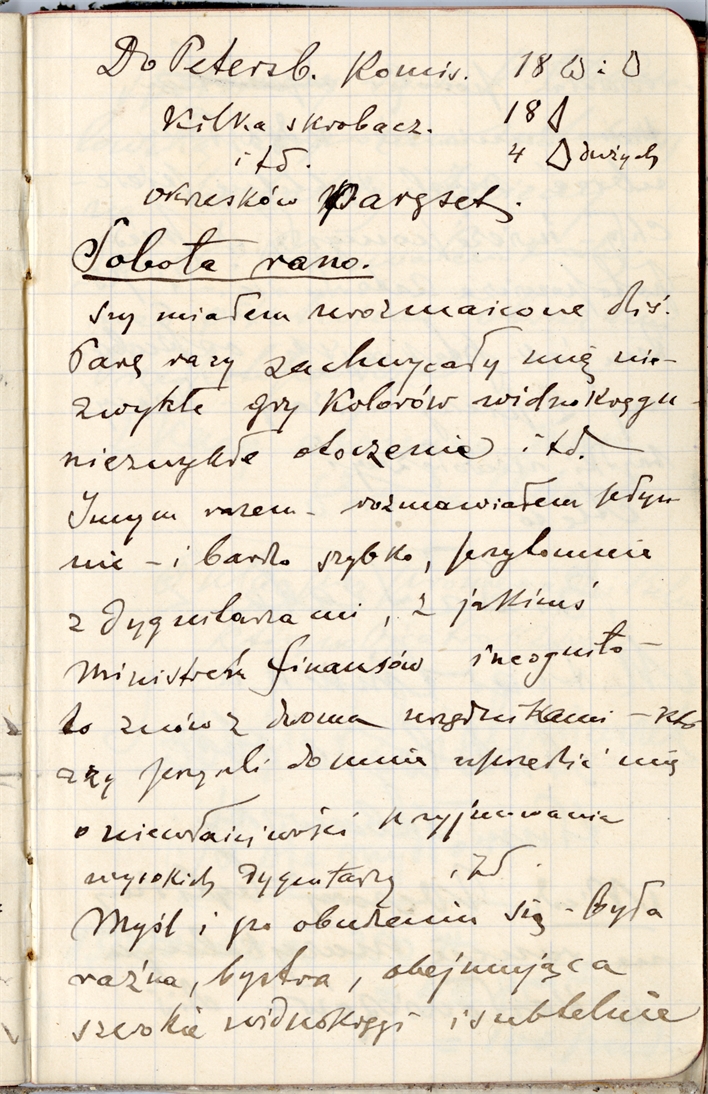 Do Petersb. Komis. 18 i
Kilka skrobacz. 18
itd. 4 dużych
okrzesków
Sobota rano.
Sny miałem urozmaicone dziś.
Parę razy zachwycały mię nie-
zwykłe gry kolorów widnokręgu -
niezwykłe otoczenie itd. —
Innym razem - rozmawiałem jedyn
nie - i bardzo szybko, przytomnie
z dygnitarzami, z jakimś
Ministrem finansów incognito -
to znów z dwoma urzędnikami - któ
rzy przyszli do mnie uprzedzić mię
o niewłaściwości przyjmowania
wysokich dygnitarzy itd.
Myśl i po obudzeniu się - była
raźna, bystra, obejmująca
szerokie widnokręgi i subtelnie